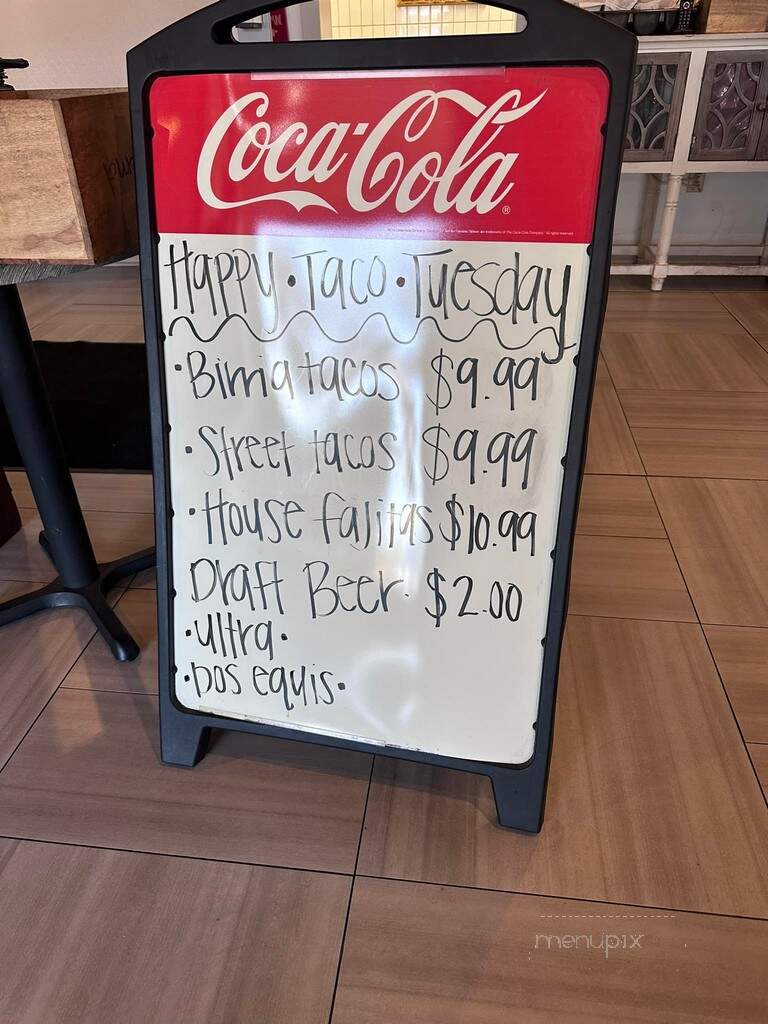 Coca-Cola
Happy · Taco · Tuesday
· Birria tacos $9.99
· Street tacos $9.99
· House fajitas $10.99
Draft Beer · $2.00
· ultra ·
· Dos equis ·
menupix